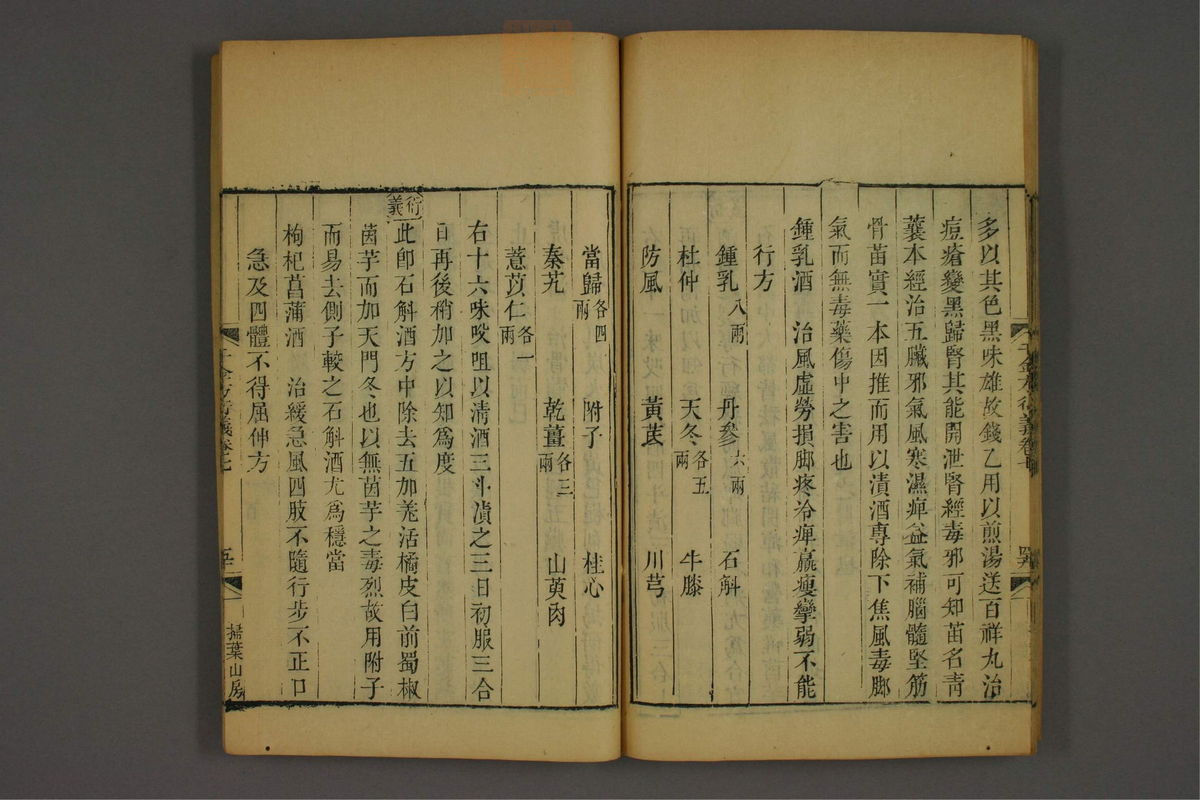 多以其色黑味雄故錢乙用以煎湯送百祥丸治
痘瘡變黑歸腎其能開泄腎經毒邪可知苗名靑
蘘本經治五臟邪氣風寒濕痺益氣補腦髓堅筋
骨苗實一本因推而用以漬酒專除下焦風毒脚
氣而無毒藥傷中之害也
鍾乳酒 治風虛勞損脚疼冷痺羸瘦攣弱不能
行方
鍾乳八兩 丹參六兩 石斛
杜仲 天冬各五兩 牛膝
防風 黃芪 川芎
當歸各四兩 附子 桂心
秦艽 乾薑各三兩 山萸肉
薏苡仁各一兩
右十六味㕮咀以淸酒三斗漬之三日初服三合
日再後稍加之以知爲度
衍義 此卽石斛酒方中除去五加羌活橘皮白前蜀椒
茵芋而加天門冬也以無茵芋之毒烈故用附子
而易去側子較之石斛酒尤爲穩當
枸杞菖蒲酒 治緩急風四肢不隨行步不正口
急及四體不得屈伸方
千金方衍義卷七
掃葉山房